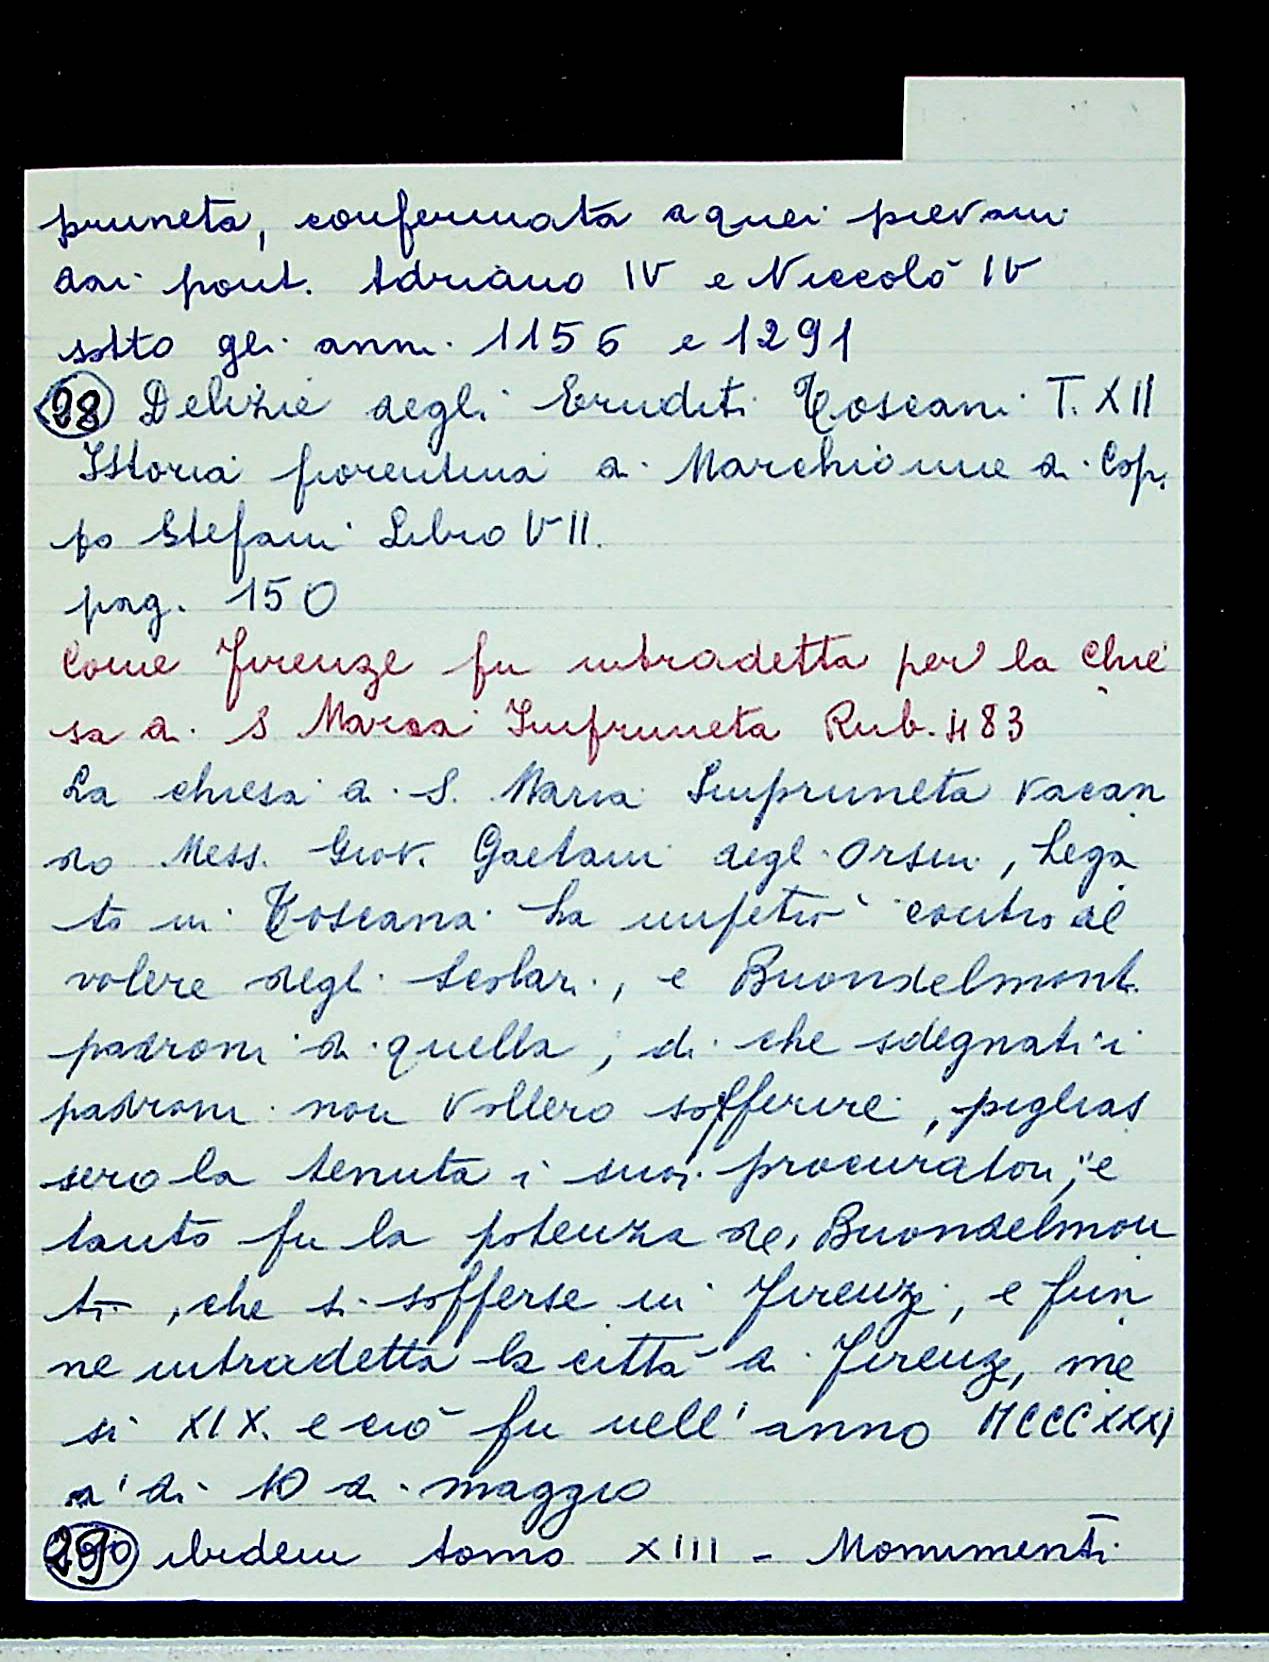 pruneta, confermata a quei pievani
dai pont. Adriano IV e Niccolò IV
sotto gli anni 1156 e 1291
28 Delizie degli Eruditi Toscani T. XII
Istoria fiorentina di Marchionne di Cop.
po Stefani Libro VII.
pag. 150
Come Firenze fu intradetta per la Chie
sa di S Maria Imfruneta Rub. 483
La chiesa di S. Maria Impruneta vacan
do Mess. Giov. Gaetani degl' Orsini, Lega
to in Toscana la impetrò contro al
volere degli Scolari, e Buondelmonti
padroni di quella, di che sdegnati i
padroni non vollero sofferire, piglias
sero la tenuta i suoi procuratori, e
tanto fu la potenza dei Buondelmon
ti, che si sofferse in Firenze, e fun
ne intradetta la città di Firenze, me
si XIX. e ciò fu nell'anno MCCCXXXI
a' di 10 di maggio
29 ibidem tomo XIII - Monumenti